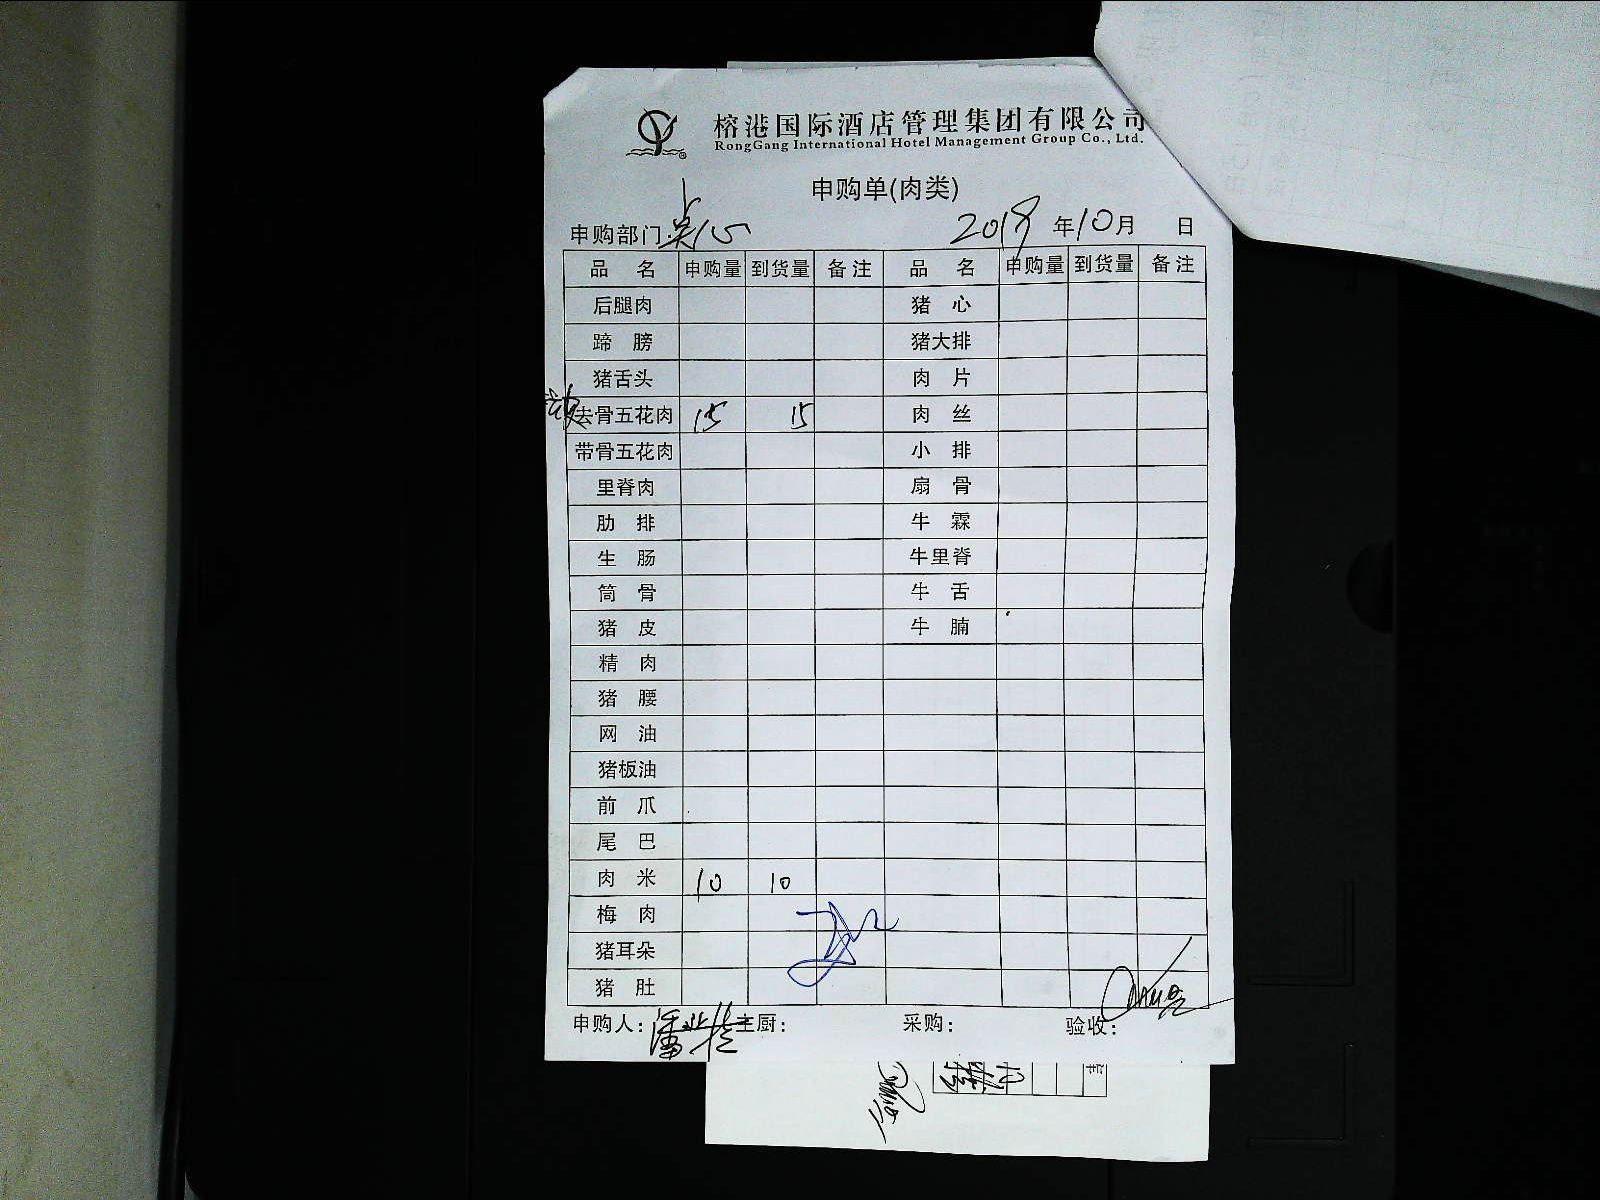 榕港国际酒店管理集团有限公司
RongGang International Hotel Management Group Co., Ltd.
申购单(肉类)
申购部门: 点心 2019 年 10 月 日
品 名 申购量 到货量 备注 品 名 申购量 到货量 备注
后腿肉 猪 心
蹄 膀 猪大排
猪舌头 肉 片
去骨五花肉 15 15 肉 丝
带骨五花肉 小 排
里脊肉 扇 骨
肋 排 牛 霖
生 肠 牛里脊
筒 骨 牛 舌
猪 皮 牛 腩
精 肉
猪 腰
网 油
猪板油
前 爪
尾 巴
肉 米 10 10
梅 肉
猪耳朵
猪 肚
申购人: 主厨: 采购: 验收: